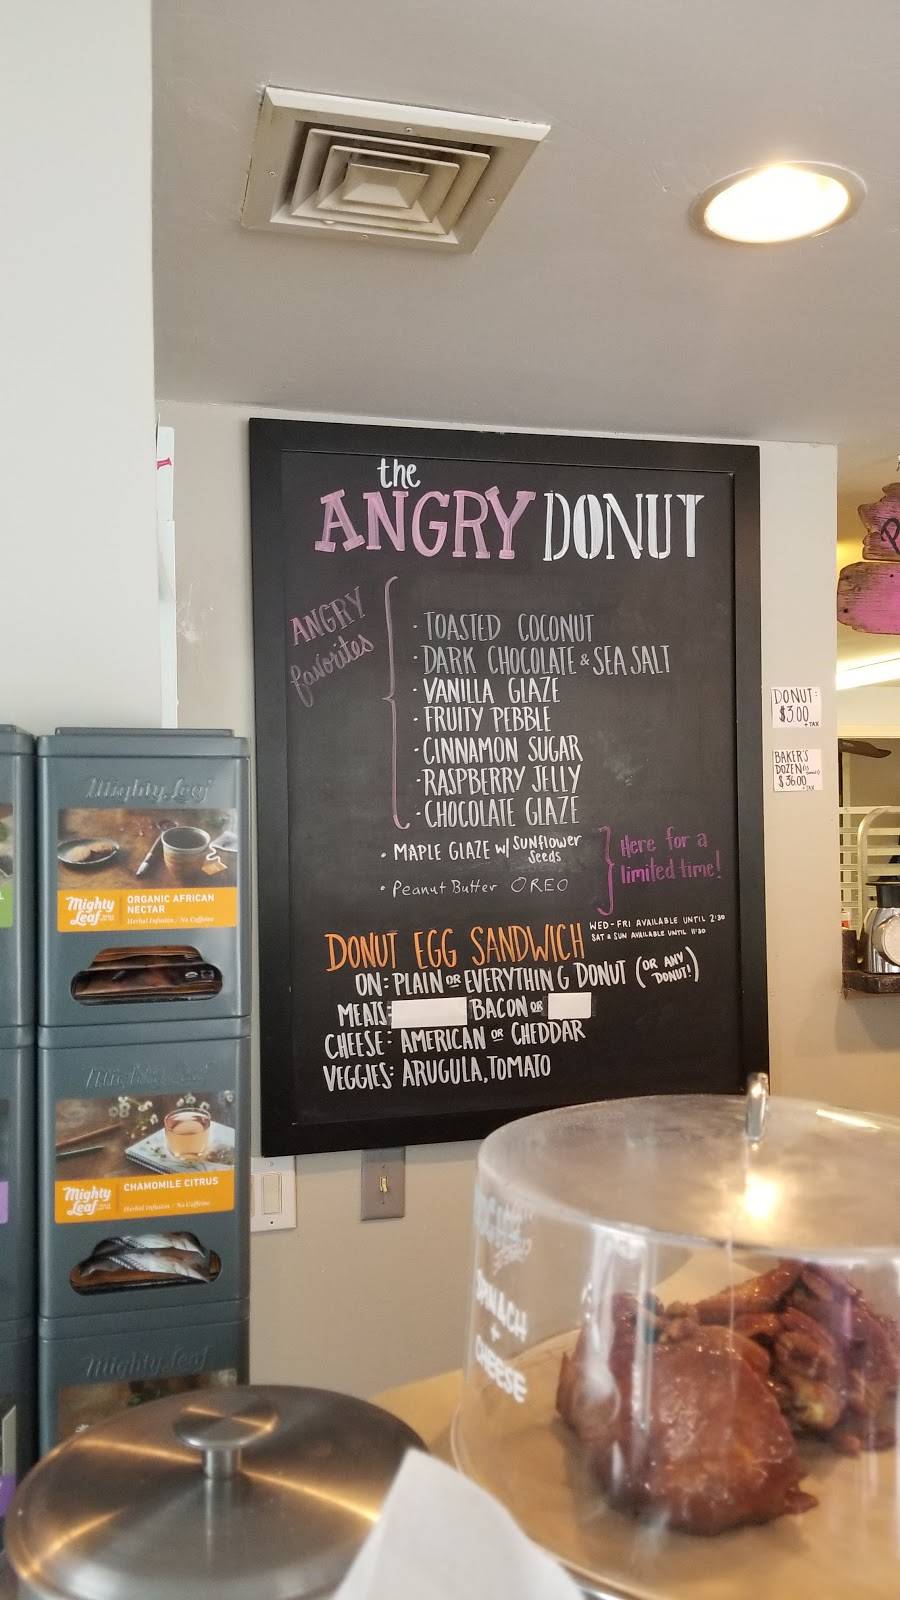 the
ANGRY DONUT
ANGRY
favorites
· TOASTED COCONUT
· DARK CHOCOLATE & SEA SALT
· VANILLA GLAZE
· FRUITY PEBBLE
· CINNAMON SUGAR
· RASPBERRY JELLY
· CHOCOLATE GLAZE
· MAPLE GLAZE w/ SUNflower
Seeds
· Peanut Butter OREO
Here for a
limited time!
DONUT EGG SANDWICH
WED-FRI AVAILABLE UNTIL 2:30
SAT & SUN AVAILABLE UNTIL 11:30
ON: PLAIN OR EVERYTHING DONUT (OR ANY
DONUT!)
MEATS: BACON OR
CHEESE: AMERICAN OR CHEDDAR
VEGGIES: ARUGULA, TOMATO
DONUT:
$3.00
+TAX
BAKER'S
DOZEN
$36.00
+TAX
Mighty Leaf
Mighty
Leaf
ORGANIC AFRICAN
NECTAR
Herbal Infusion / No Caffeine
Mighty Leaf
Mighty
Leaf
CHAMOMILE CITRUS
Herbal Infusion / No Caffeine
Mighty Leaf
SPINACH
+
CHEESE